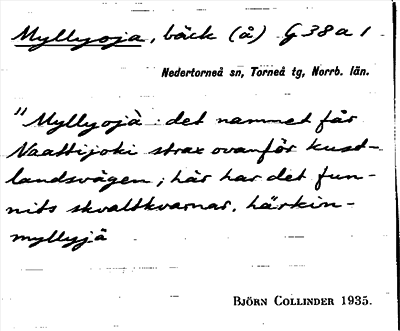 Myllyoja, bäck (å) G 38 a 1
Nedertorneå sn, Torneå tg, Norrb. län.
"Myllyojà: det namnet får
Naattijoki strax ovanför kust-
landsvägen; här har det fun-
nits skvaltkvarnar, härkin-
myllyjä
BJÖRN COLLINDER 1935.